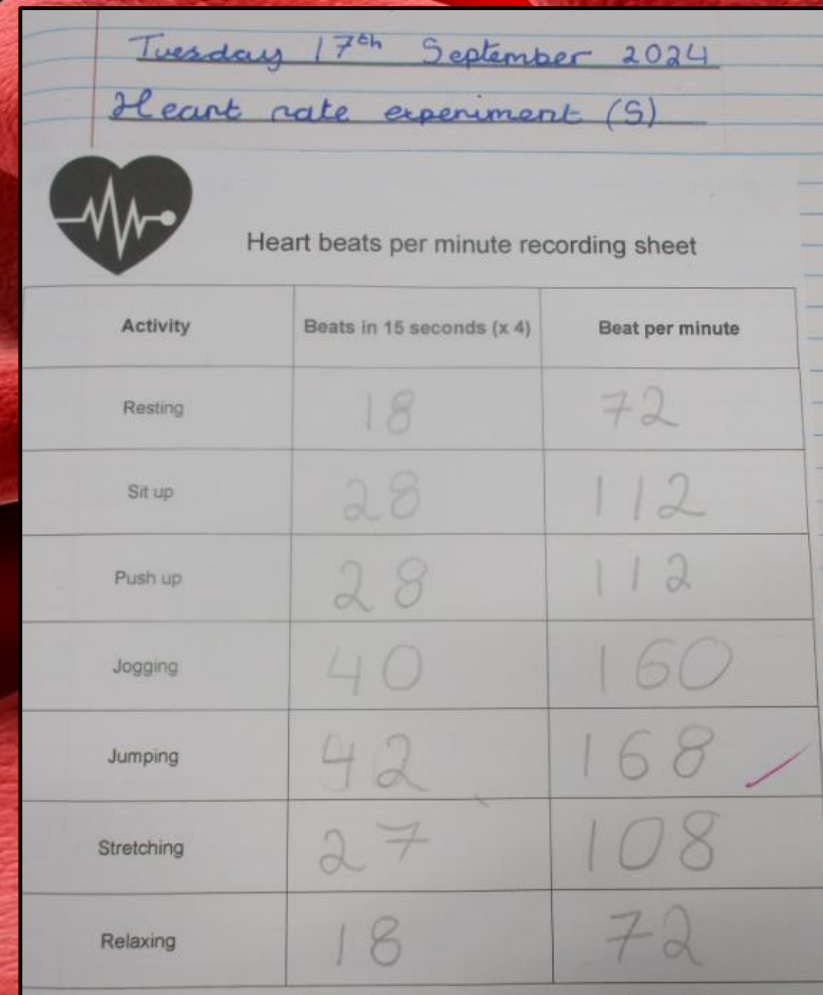 Tuesday 17th September 2024
Heart rate experiment (S)
Heart beats per minute recording sheet
Activity Beats in 15 seconds (x 4) Beat per minute
Resting 18 72
Sit up 28 112
Push up 28 112
Jogging 40 160
Jumping 42 168
Stretching 27 108
Relaxing 18 72